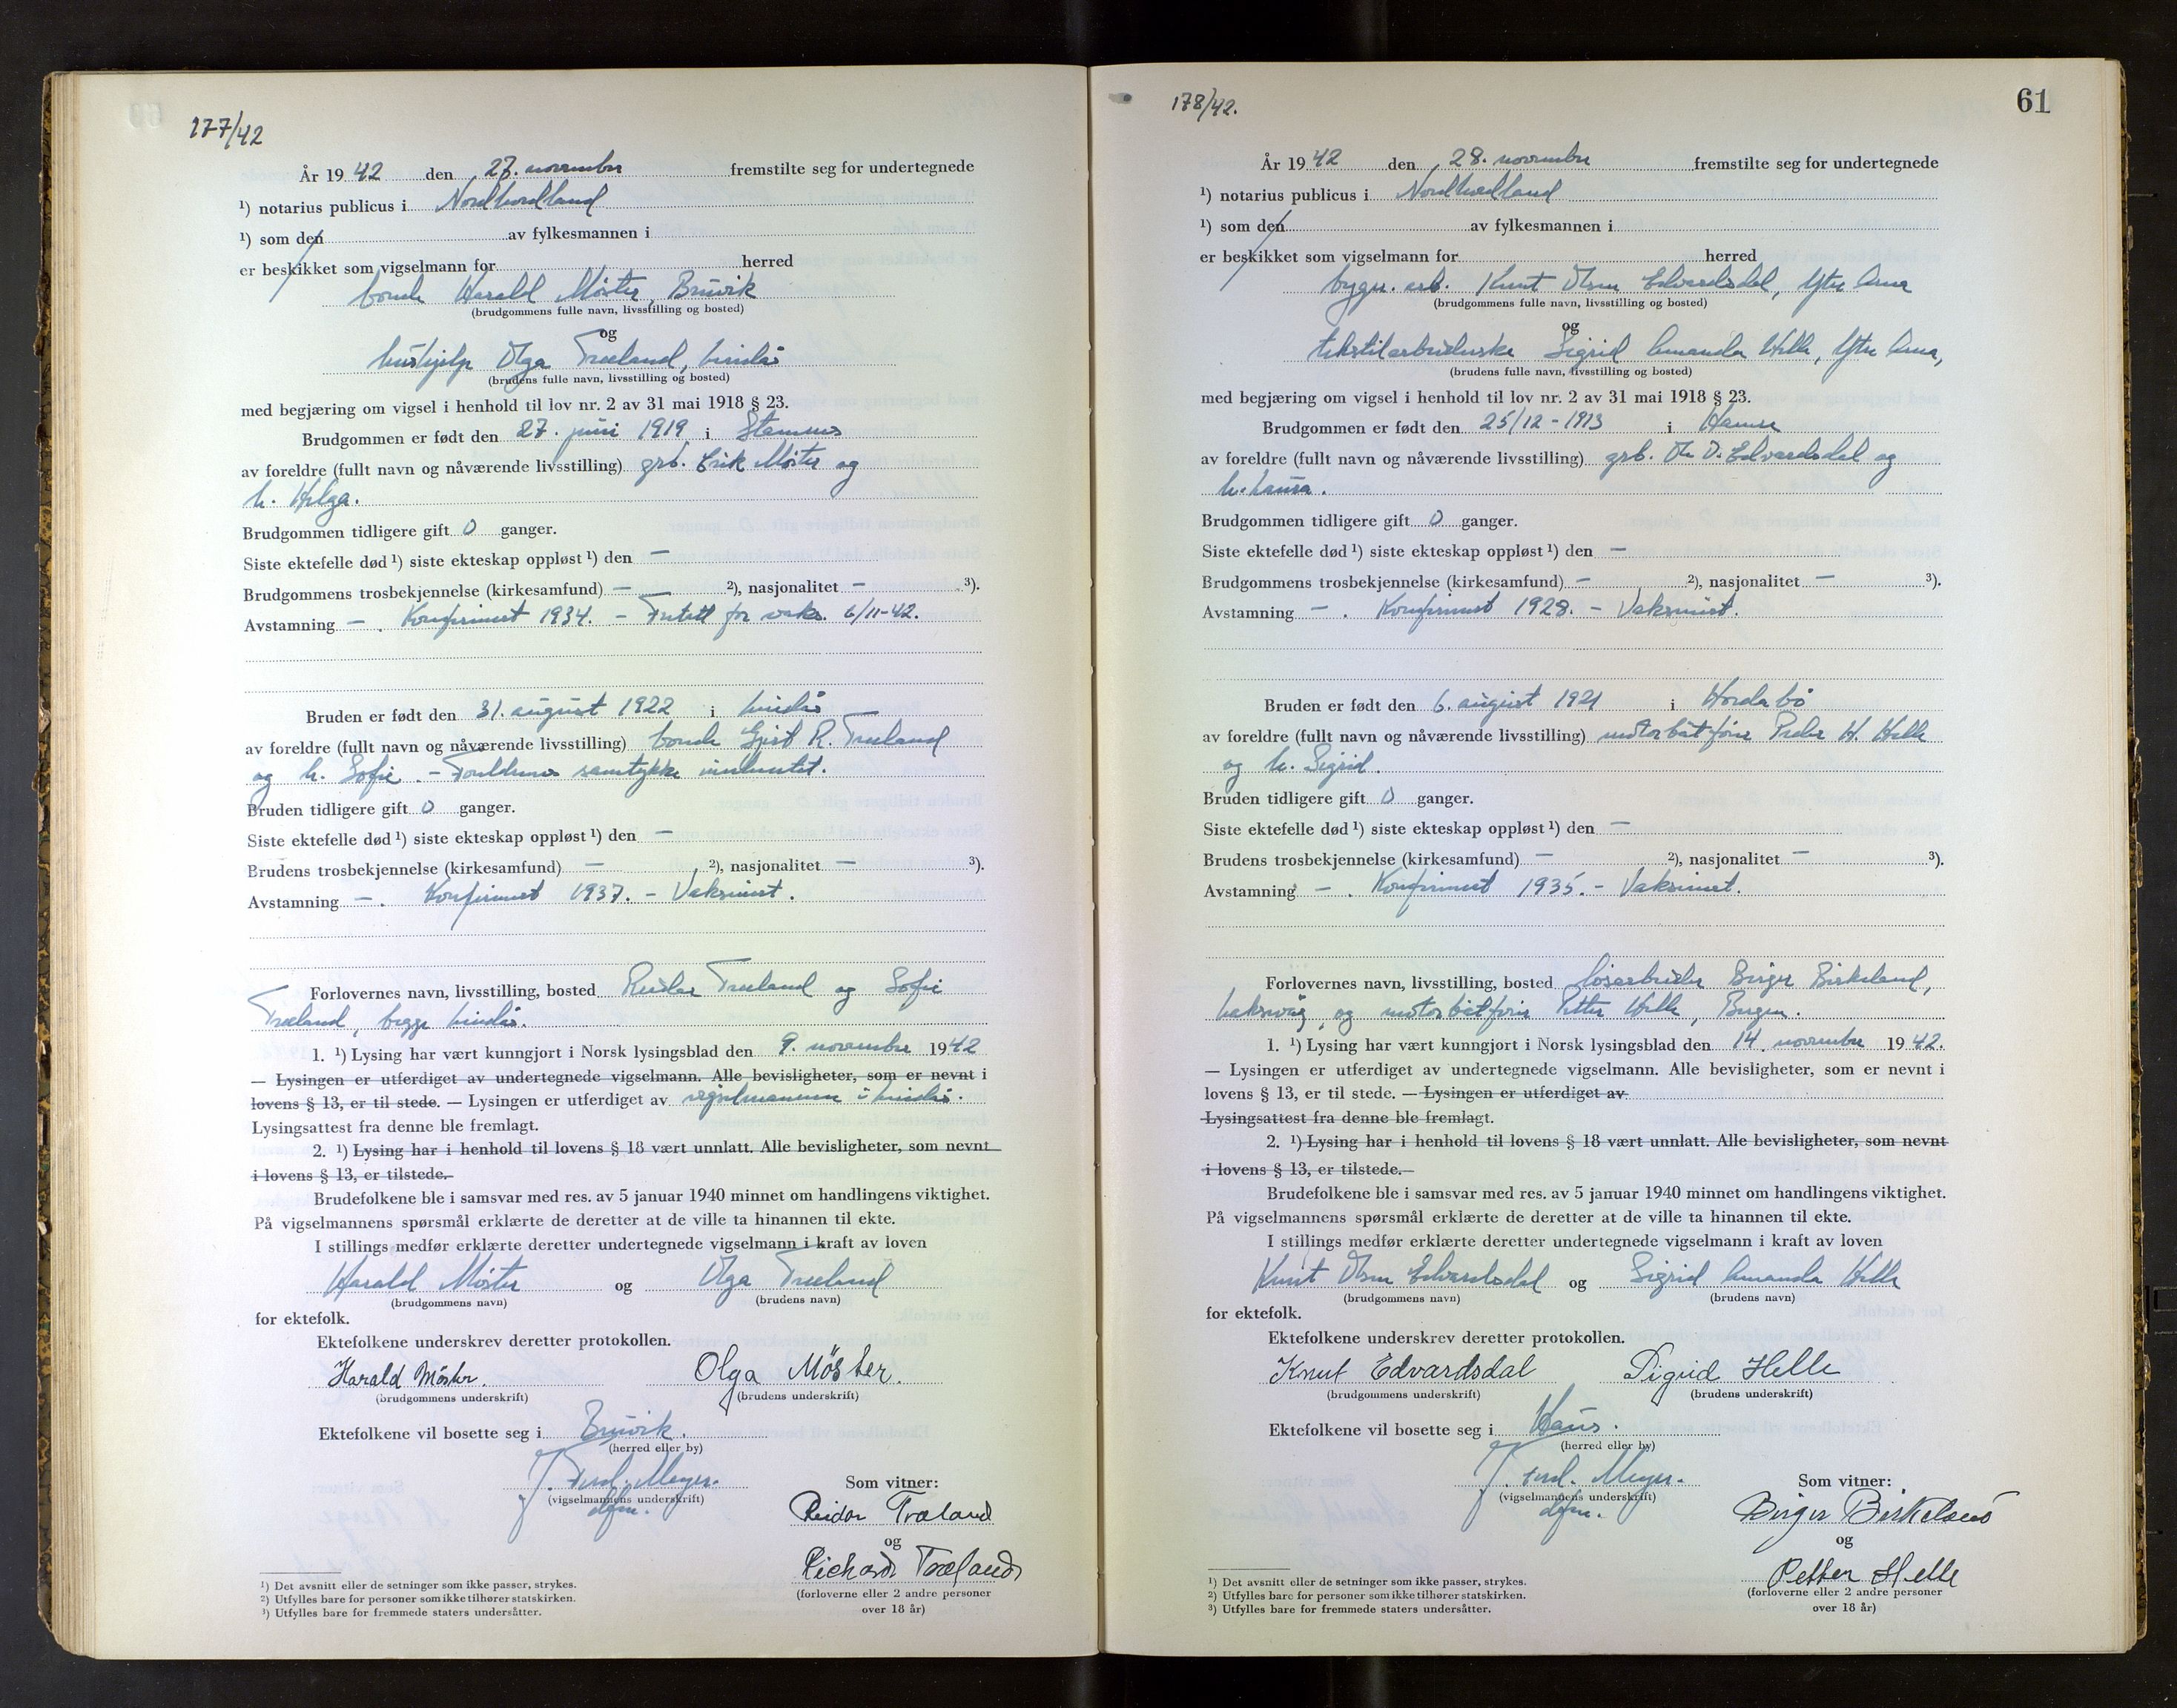 177/42
År 1942 den 27. november fremstilte seg for undertegnede
¹) notarius publicus i Nordhordland
¹) som den av fylkesmannen i
er beskikket som vigselmann for herred
bonde Harald Möster, Bruvik
(brudgommens fulle navn, livsstilling og bosted)
og
hushjelp Olga Træland, Lindås
(brudens fulle navn, livsstilling og bosted)
med begjæring om vigsel i henhold til lov nr. 2 av 31 mai 1918 § 23.
Brudgommen er født den 27. juni 1919 i Stamnes
av foreldre (fullt navn og nåværende livsstilling) grb. Erik Möster og
h. Helga.
Brudgommen tidligere gift 0 ganger.
Siste ektefelle død ¹) siste ekteskap oppløst ¹) den —
Brudgommens trosbekjennelse (kirkesamfund) — ²), nasjonalitet — ³).
Avstamning — . Konfirmert 1934. – Fritatt for vaks. 6/11-42.
Bruden er født den 31. august 1922 i Lindås
av foreldre (fullt navn og nåværende livsstilling) bonde Gjert R. Træland
og h. Sofie. – Foreldrenes samtykke innhentet.
Bruden tidligere gift 0 ganger.
Siste ektefelle død ¹) siste ekteskap oppløst ¹) den —
Brudens trosbekjennelse (kirkesamfund) — ²), nasjonalitet — ³).
Avstamning — . Konfirmert 1937. – Vaksinert.
Forlovernes navn, livsstilling, bosted Reidar Træland og Sofie
Træland, begge Lindås.
1. ¹) Lysing har vært kunngjort i Norsk lysingsblad den 9. november 1942
— Lysingen er utferdiget av undertegnede vigselmann. Alle bevisligheter, som er nevnt i
lovens § 13, er til stede. — Lysingen er utferdiget av vigselmannen i Lindås.
Lysingsattest fra denne ble fremlagt.
2. ¹) Lysing har i henhold til lovens § 18 vært unnlatt. Alle bevisligheter, som nevnt
i lovens § 13, er tilstede.
Brudefolkene ble i samsvar med res. av 5 januar 1940 minnet om handlingens viktighet.
På vigselmannens spørsmål erklærte de deretter at de ville ta hinannen til ekte.
I stillings medfør erklærte deretter undertegnede vigselmann i kraft av loven
Harald Möster og Olga Træland
(brudgommens navn) (brudens navn)
for ektefolk.
Ektefolkene underskrev deretter protokollen.
Harald Möster. Olga Möster.
(brudgommens underskrift) (brudens underskrift)
Ektefolkene vil bosette seg i Bruvik.
(herred eller by)
J. Ferd. Meyer.
(vigselmannens underskrift)
dfm.
Som vitner:
Reidar Træland
og
Richard Træland
(forloverne eller 2 andre personer
over 18 år)
¹) Det avsnitt eller de setninger som ikke passer, strykes.
²) Utfylles bare for personer som ikke tilhører statskirken.
³) Utfylles bare for fremmede staters undersåtter.
178/42.
61
År 1942 den 28. november fremstilte seg for undertegnede
¹) notarius publicus i Nordhordland
¹) som den av fylkesmannen i
er beskikket som vigselmann for herred
bygn. arb. Knut Olsen Edvardsdal, Ytre Arna
(brudgommens fulle navn, livsstilling og bosted)
og
tekstilarbeiderske Sigrid Amanda Helle, Ytre Arna,
(brudens fulle navn, livsstilling og bosted)
med begjæring om vigsel i henhold til lov nr. 2 av 31 mai 1918 § 23.
Brudgommen er født den 25/12 - 1913 i Hamre
av foreldre (fullt navn og nåværende livsstilling) grb. Ole O. Edvardsdal og
h. Laura.
Brudgommen tidligere gift 0 ganger.
Siste ektefelle død ¹) siste ekteskap oppløst ¹) den —
Brudgommens trosbekjennelse (kirkesamfund) — ²), nasjonalitet — ³).
Avstamning — . Konfirmert 1928. – Vaksinert.
Bruden er født den 6. august 1921 i Hordabø
av foreldre (fullt navn og nåværende livsstilling) motorbåtfører Peder H. Helle
og h. Sigrid.
Bruden tidligere gift 0 ganger.
Siste ektefelle død ¹) siste ekteskap oppløst ¹) den —
Brudens trosbekjennelse (kirkesamfund) — ²), nasjonalitet — ³).
Avstamning — . Konfirmert 1935. – Vaksinert.
Forlovernes navn, livsstilling, bosted løsarbeider Birger Birkeland,
Laksevåg, og motorbåtfører Petter Helle, Bergen.
1. ¹) Lysing har vært kunngjort i Norsk lysingsblad den 14. november 1942.
— Lysingen er utferdiget av undertegnede vigselmann. Alle bevisligheter, som er nevnt i
lovens § 13, er til stede. — Lysingen er utferdiget av
Lysingsattest fra denne ble fremlagt.
2. ¹) Lysing har i henhold til lovens § 18 vært unnlatt. Alle bevisligheter, som nevnt
i lovens § 13, er tilstede.
Brudefolkene ble i samsvar med res. av 5 januar 1940 minnet om handlingens viktighet.
På vigselmannens spørsmål erklærte de deretter at de ville ta hinannen til ekte.
I stillings medfør erklærte deretter undertegnede vigselmann i kraft av loven
Knut Olsen Edvardsdal og Sigrid Amanda Helle
(brudgommens navn) (brudens navn)
for ektefolk.
Ektefolkene underskrev deretter protokollen.
Knut Edvardsdal Sigrid Helle
(brudgommens underskrift) (brudens underskrift)
Ektefolkene vil bosette seg i Haus.
(herred eller by)
J. Ferd. Meyer.
(vigselmannens underskrift)
dfm.
Som vitner:
Birger Birkeland
og
Petter Helle
(forloverne eller 2 andre personer
over 18 år)
¹) Det avsnitt eller de setninger som ikke passer, strykes.
²) Utfylles bare for personer som ikke tilhører statskirken.
³) Utfylles bare for fremmede staters undersåtter.